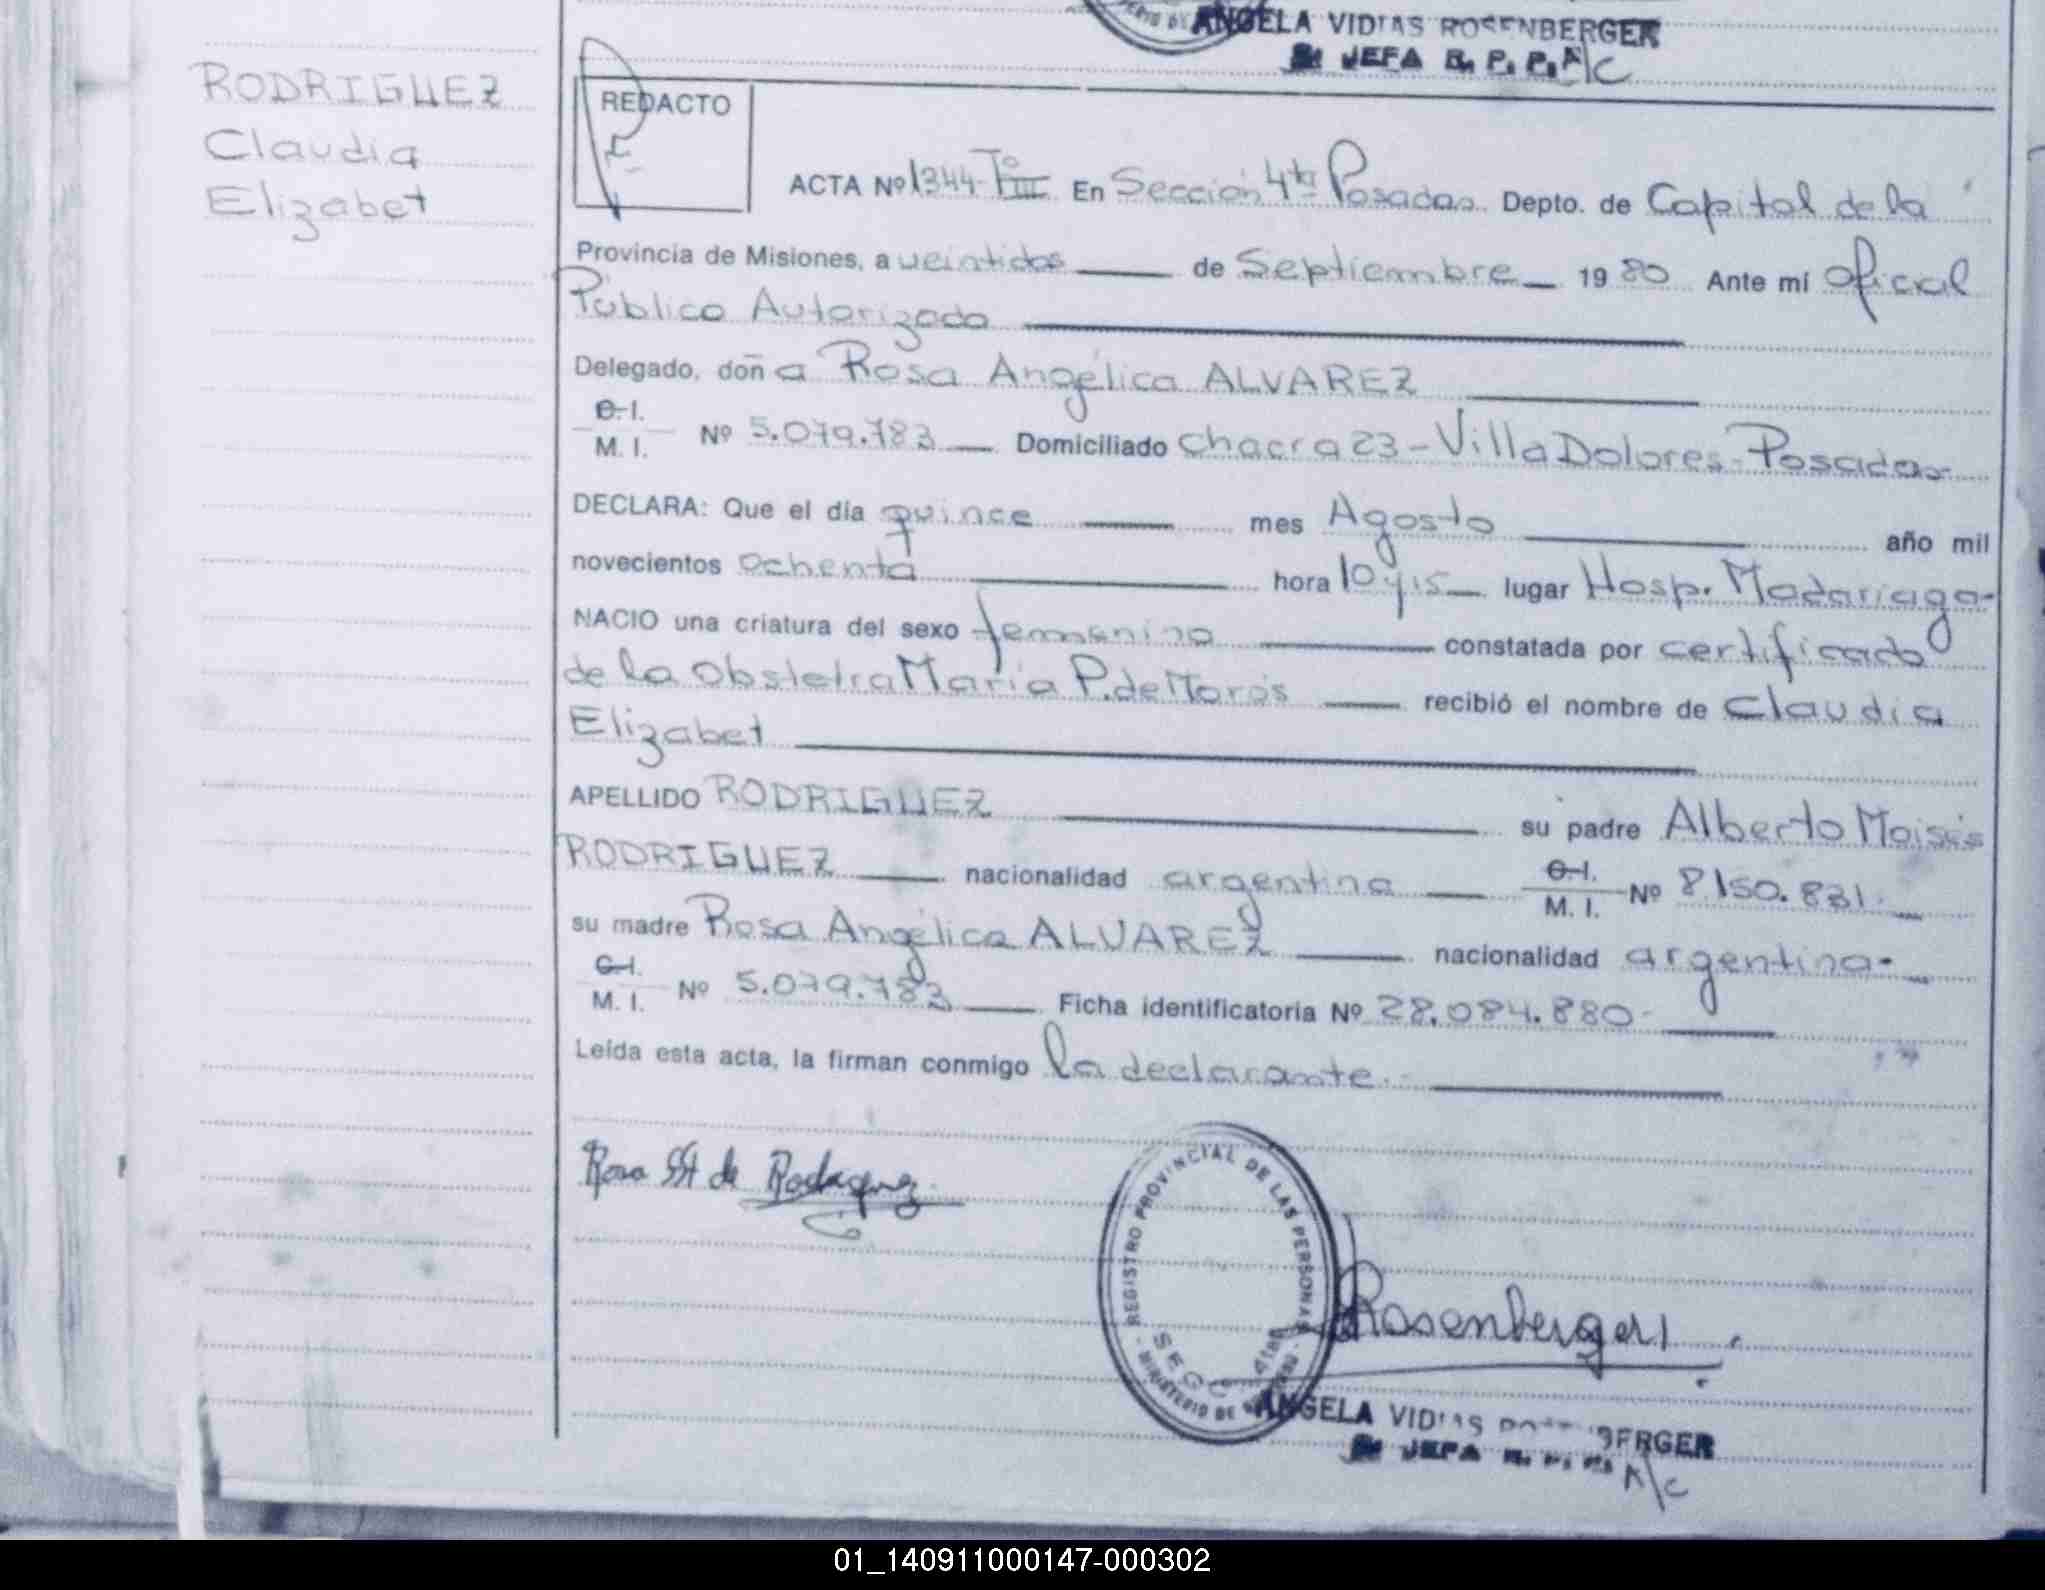 ANGELA VIDIAS ROSENBERGER
JEFA R. P. P. A/C
RODRIGUEZ
Claudia
Elizabet
REDACTO
ACTA Nº 1344-Tº III En Sección 4ta Posadas Depto. de Capital de la
Provincia de Misiones, a veintidos de Septiembre 1980 Ante mí Oficial
Público Autorizado
Delegado, doña Rosa Angélica ALVAREZ
C.I.
M. I. Nº 5.079.783 Domiciliado Chacra 23-Villa Dolores-Posadas
DECLARA: Que el día quince mes Agosto año mil
novecientos ochenta hora 10 y 15 lugar Hosp. Madariaga-
NACIO una criatura del sexo femenino constatada por certificado
de la Obstetra María P. de Moros recibió el nombre de Claudia
Elizabet
APELLIDO RODRIGUEZ su padre Alberto Moisés
RODRIGUEZ nacionalidad argentina C.I. M. I. Nº 8150.831.
su madre Rosa Angélica ALVAREZ nacionalidad argentina-
C.I.
M. I. Nº 5.079.783 Ficha identificatoria Nº 28.084.880-
Leída esta acta, la firman conmigo la declarante.
Rosa de Rodriguez
REGISTRO PROVINCIAL DE LAS PERSONAS
MINISTERIO DE
SECC 4ta
Rosenberger
ANGELA VIDIAS ROSENBERGER
JEFA A/C
01_140911000147-000302